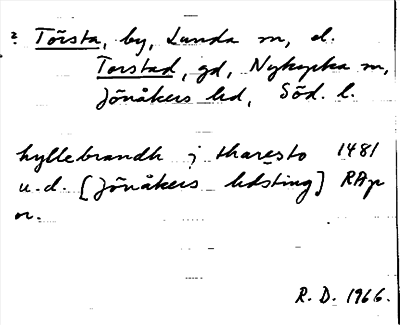 ? Törsta, by, Lunda sn, el.
Torstad, gd, Nykyrka sn,
Jönåkers hd, Söd. l.
hyllebrandh j tharesto 1481
u.d. [Jönåkers hdsting] RAp
or.
R. D. 1966.